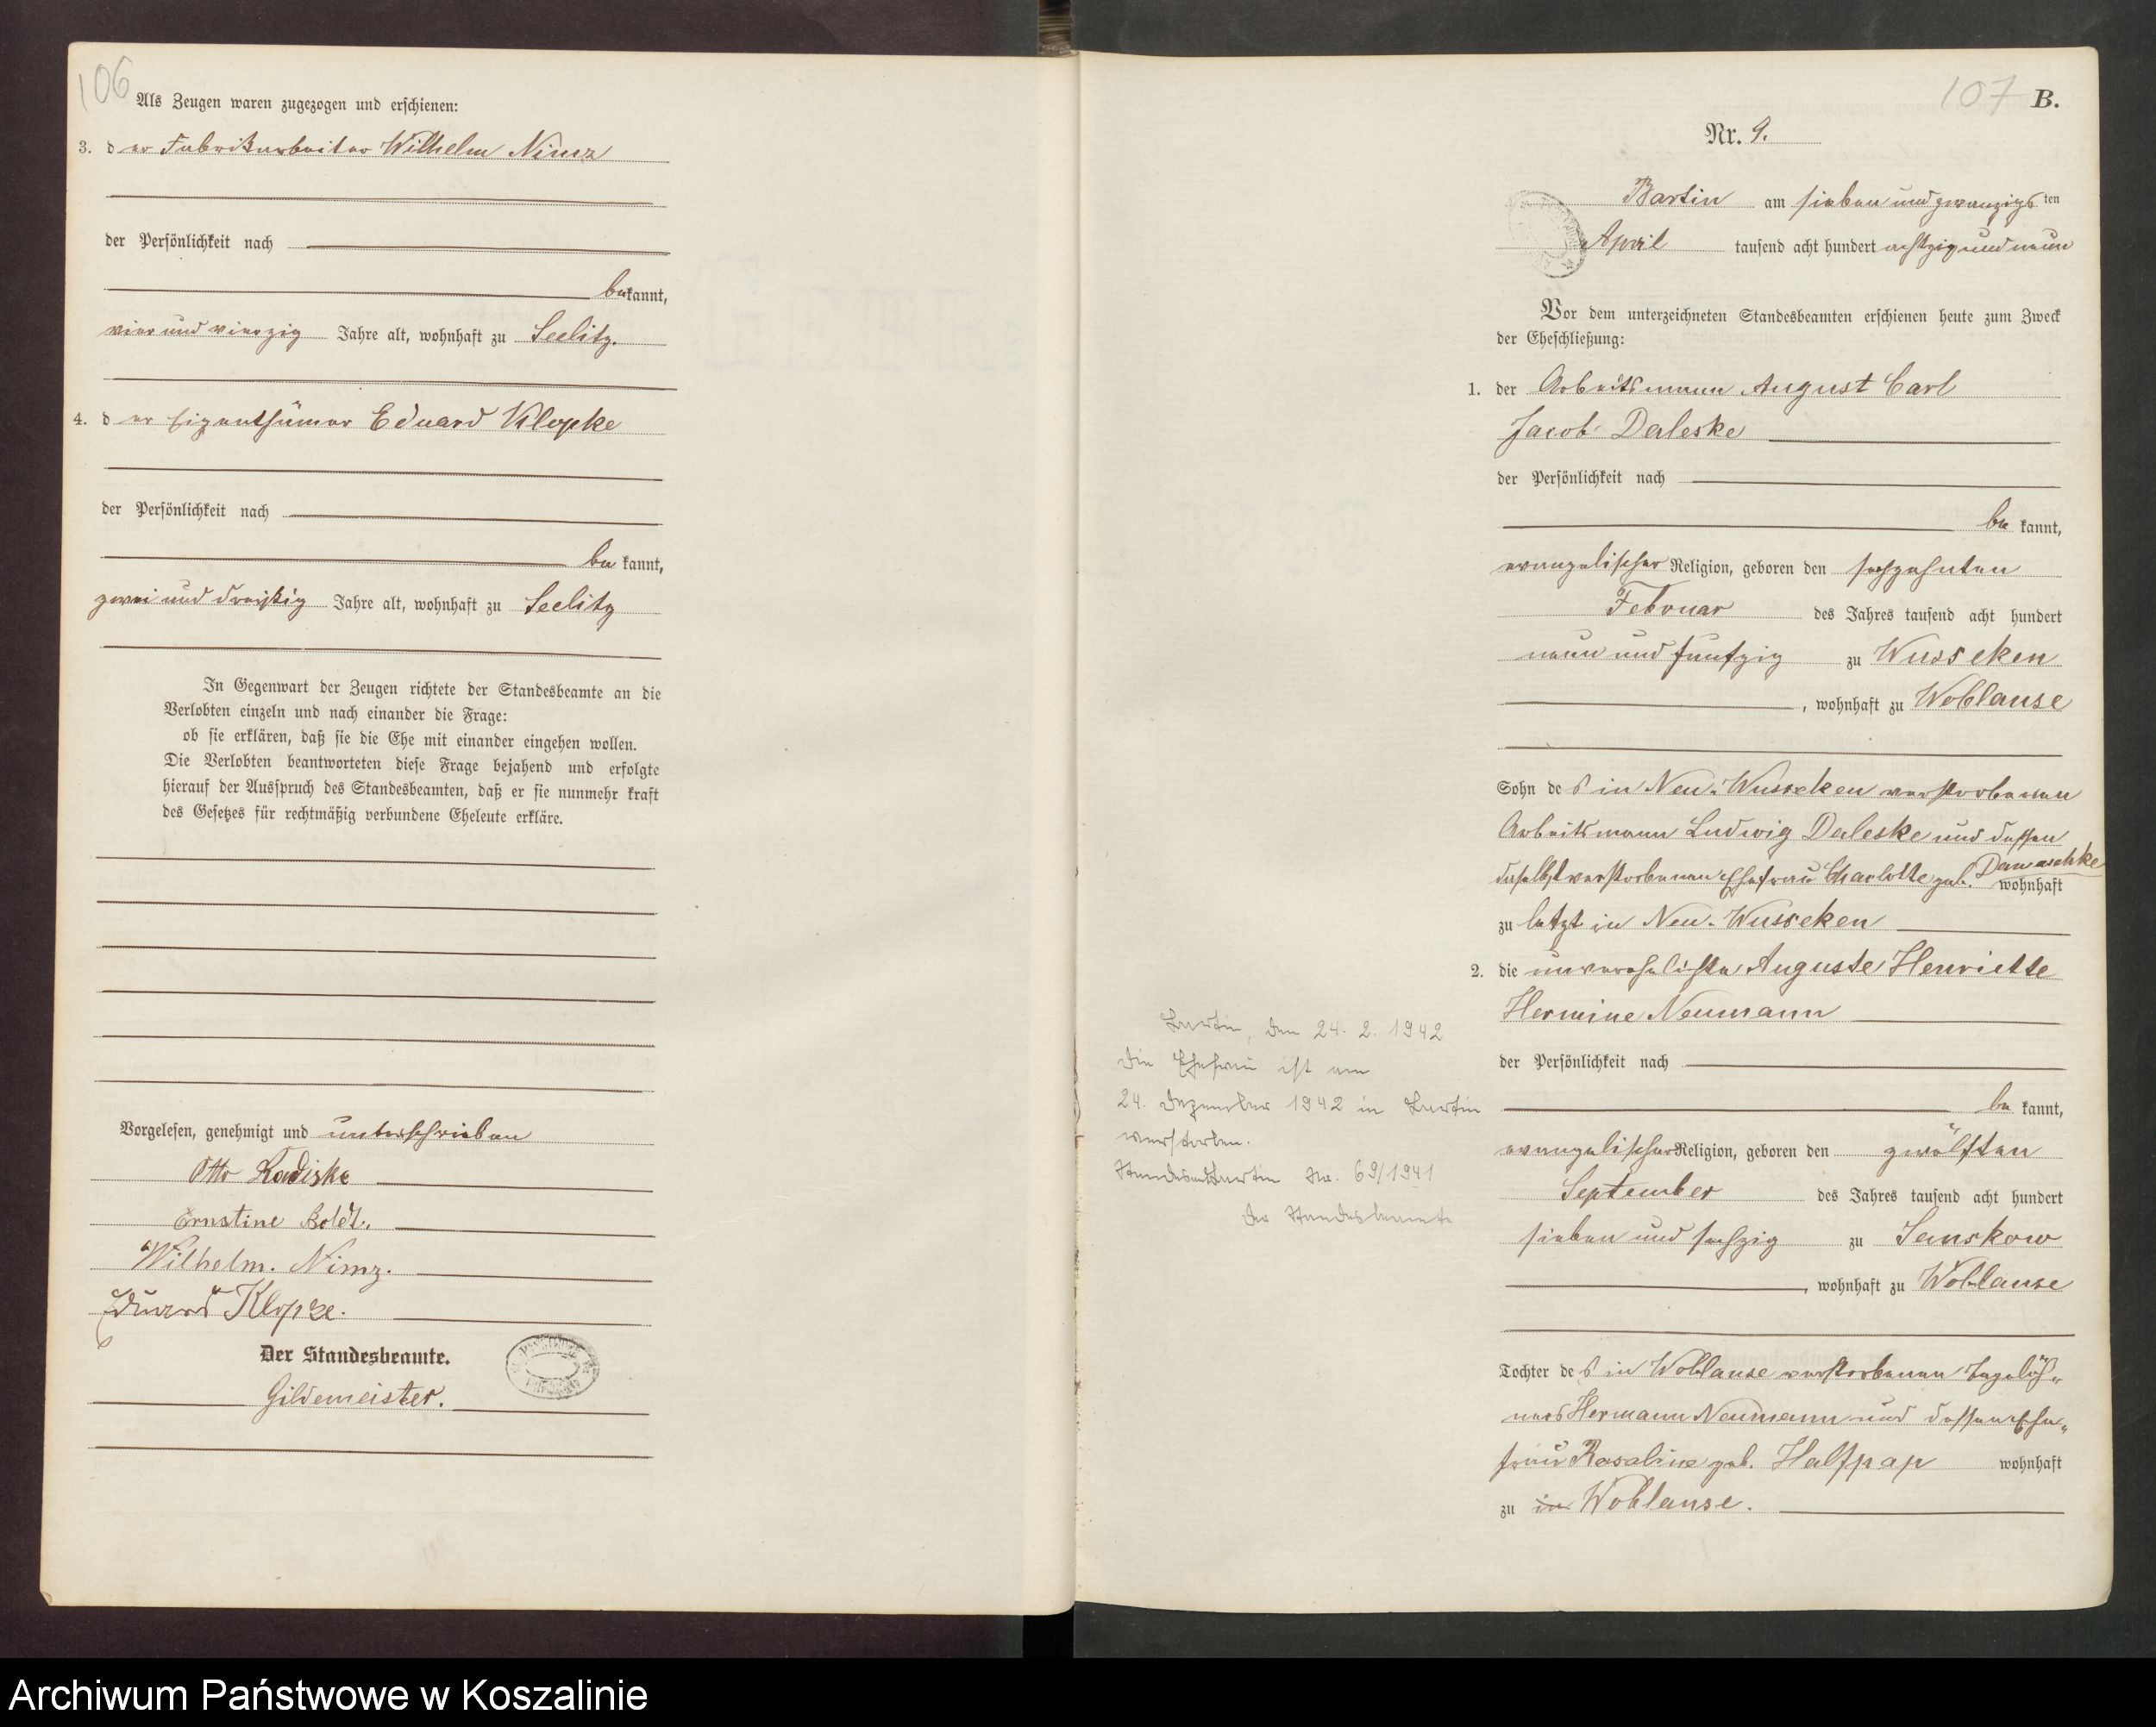 106
Als Zeugen waren zugezogen und erschienen:
3. der Fabrikarbeiter Wilhelm Nimz
der Persönlichkeit nach
bekannt,
vier und vierzig Jahre alt, wohnhaft zu Seelitz.
4. der Eigenthümer Eduard Klopke
der Persönlichkeit nach
be kannt,
zwei und dreißig Jahre alt, wohnhaft zu Seelitz
In Gegenwart der Zeugen richtete der Standesbeamte an die
Verlobten einzeln und nach einander die Frage:
ob sie erklären, daß sie die Ehe mit einander eingehen wollen.
Die Verlobten beantworteten diese Frage bejahend und erfolgte
hierauf der Ausspruch des Standesbeamten, daß er sie nunmehr kraft
des Gesetzes für rechtmäßig verbundene Eheleute erkläre.
Vorgelesen, genehmigt und unterschrieben
Otto Radiske
Ernstine Boldt.
Wilhelm. Nimz.
Eduard Klopke.
Der Standesbeamte.
Gildemeister.
107 B.
Nr. 9.
Bartin am sieben und zwanzigsten
April tausend acht hundert achtzig und neun
Vor dem unterzeichneten Standesbeamten erschienen heute zum Zweck
der Eheschließung:
1. der Arbeitsmann August Carl
Jacob Daleske
der Persönlichkeit nach
be kannt,
evangelischer Religion, geboren den sechzehnten
Februar des Jahres tausend acht hundert
neun und fünfzig zu Wusseken
, wohnhaft zu Woblanse
Sohn des in Neu-Wusseken verstorbenen
Arbeitsmann Ludwig Daleske und dessen
daselbst verstorbenen Ehefrau Charlotte geb. Damaschke wohnhaft
zu letzt in Neu-Wusseken
2. die unverehelichte Auguste Henriette
Hermine Neumann
der Persönlichkeit nach
be kannt,
evangelischer Religion, geboren den zwölften
September des Jahres tausend acht hundert
sieben und sechzig zu Janskow
, wohnhaft zu Woblanse
Tochter des in Woblanse verstorbenen Tagelöh-
ners Hermann Neumann und dessen Ehe-
frau Rosaline geb. Halfpap wohnhaft
zu in Woblanse.
Bartin, den 24. 2. 1942
Die Ehefrau ist am
24. Dezember 1942 in Bartin
verstorben.
Standesamt Bartin Nr. 69/1941
Der Standesbeamte
Archiwum Państwowe w Koszalinie